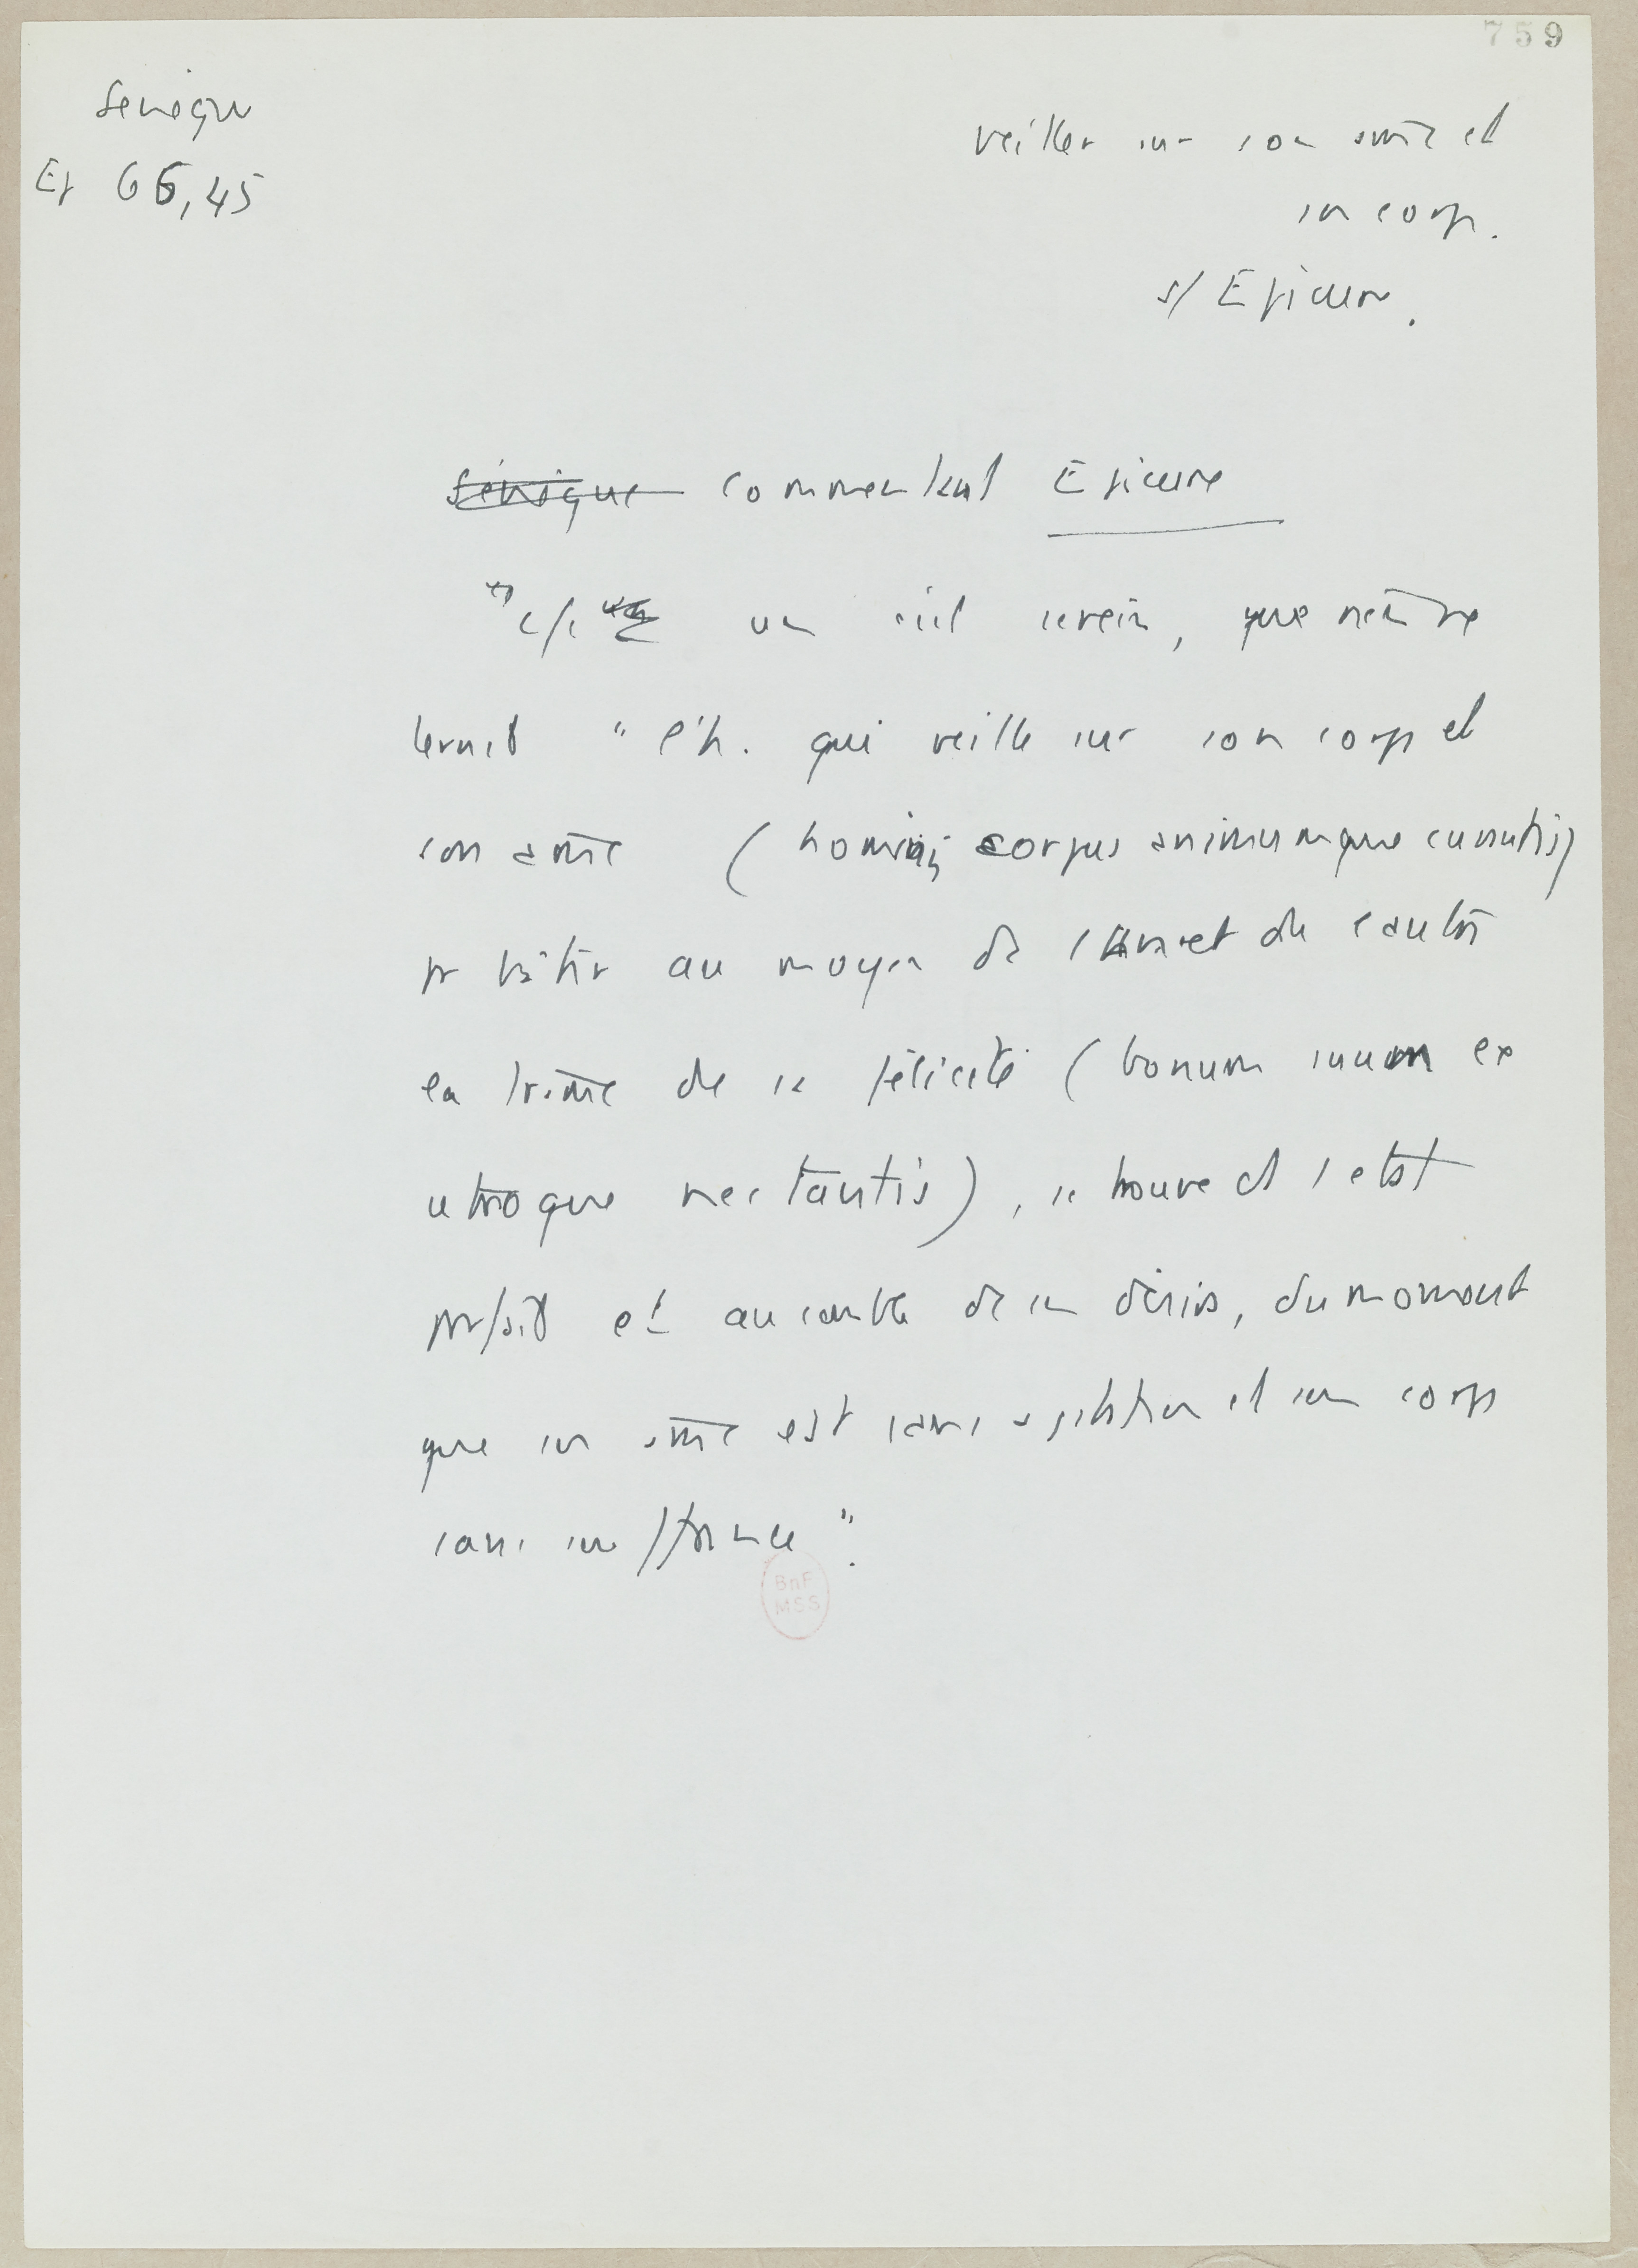 759
Sénèque
Ep 66, 45
Veiller sur son âme et
son corps.
s/ Epicure.
Sénèque commentant Epicure
un ciel serein, que rien ne
ternit " l'h. qui veille sur son corps et
son âme (hominis corpus animumque curantis)
pr bâtir au moyen de l'un et de l'autre
la trame de sa félicité (bonum suum ex
utroque nectantis), se trouve ds 1 état
parfait et au comble de ses désirs, du moment
que son âme est sans agitation et son corps
sans souffrance".
BnF
MSS